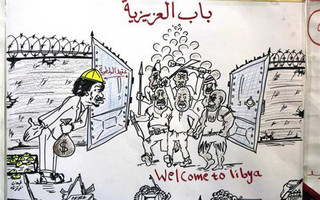 باب العزيزية
Welcome to libya